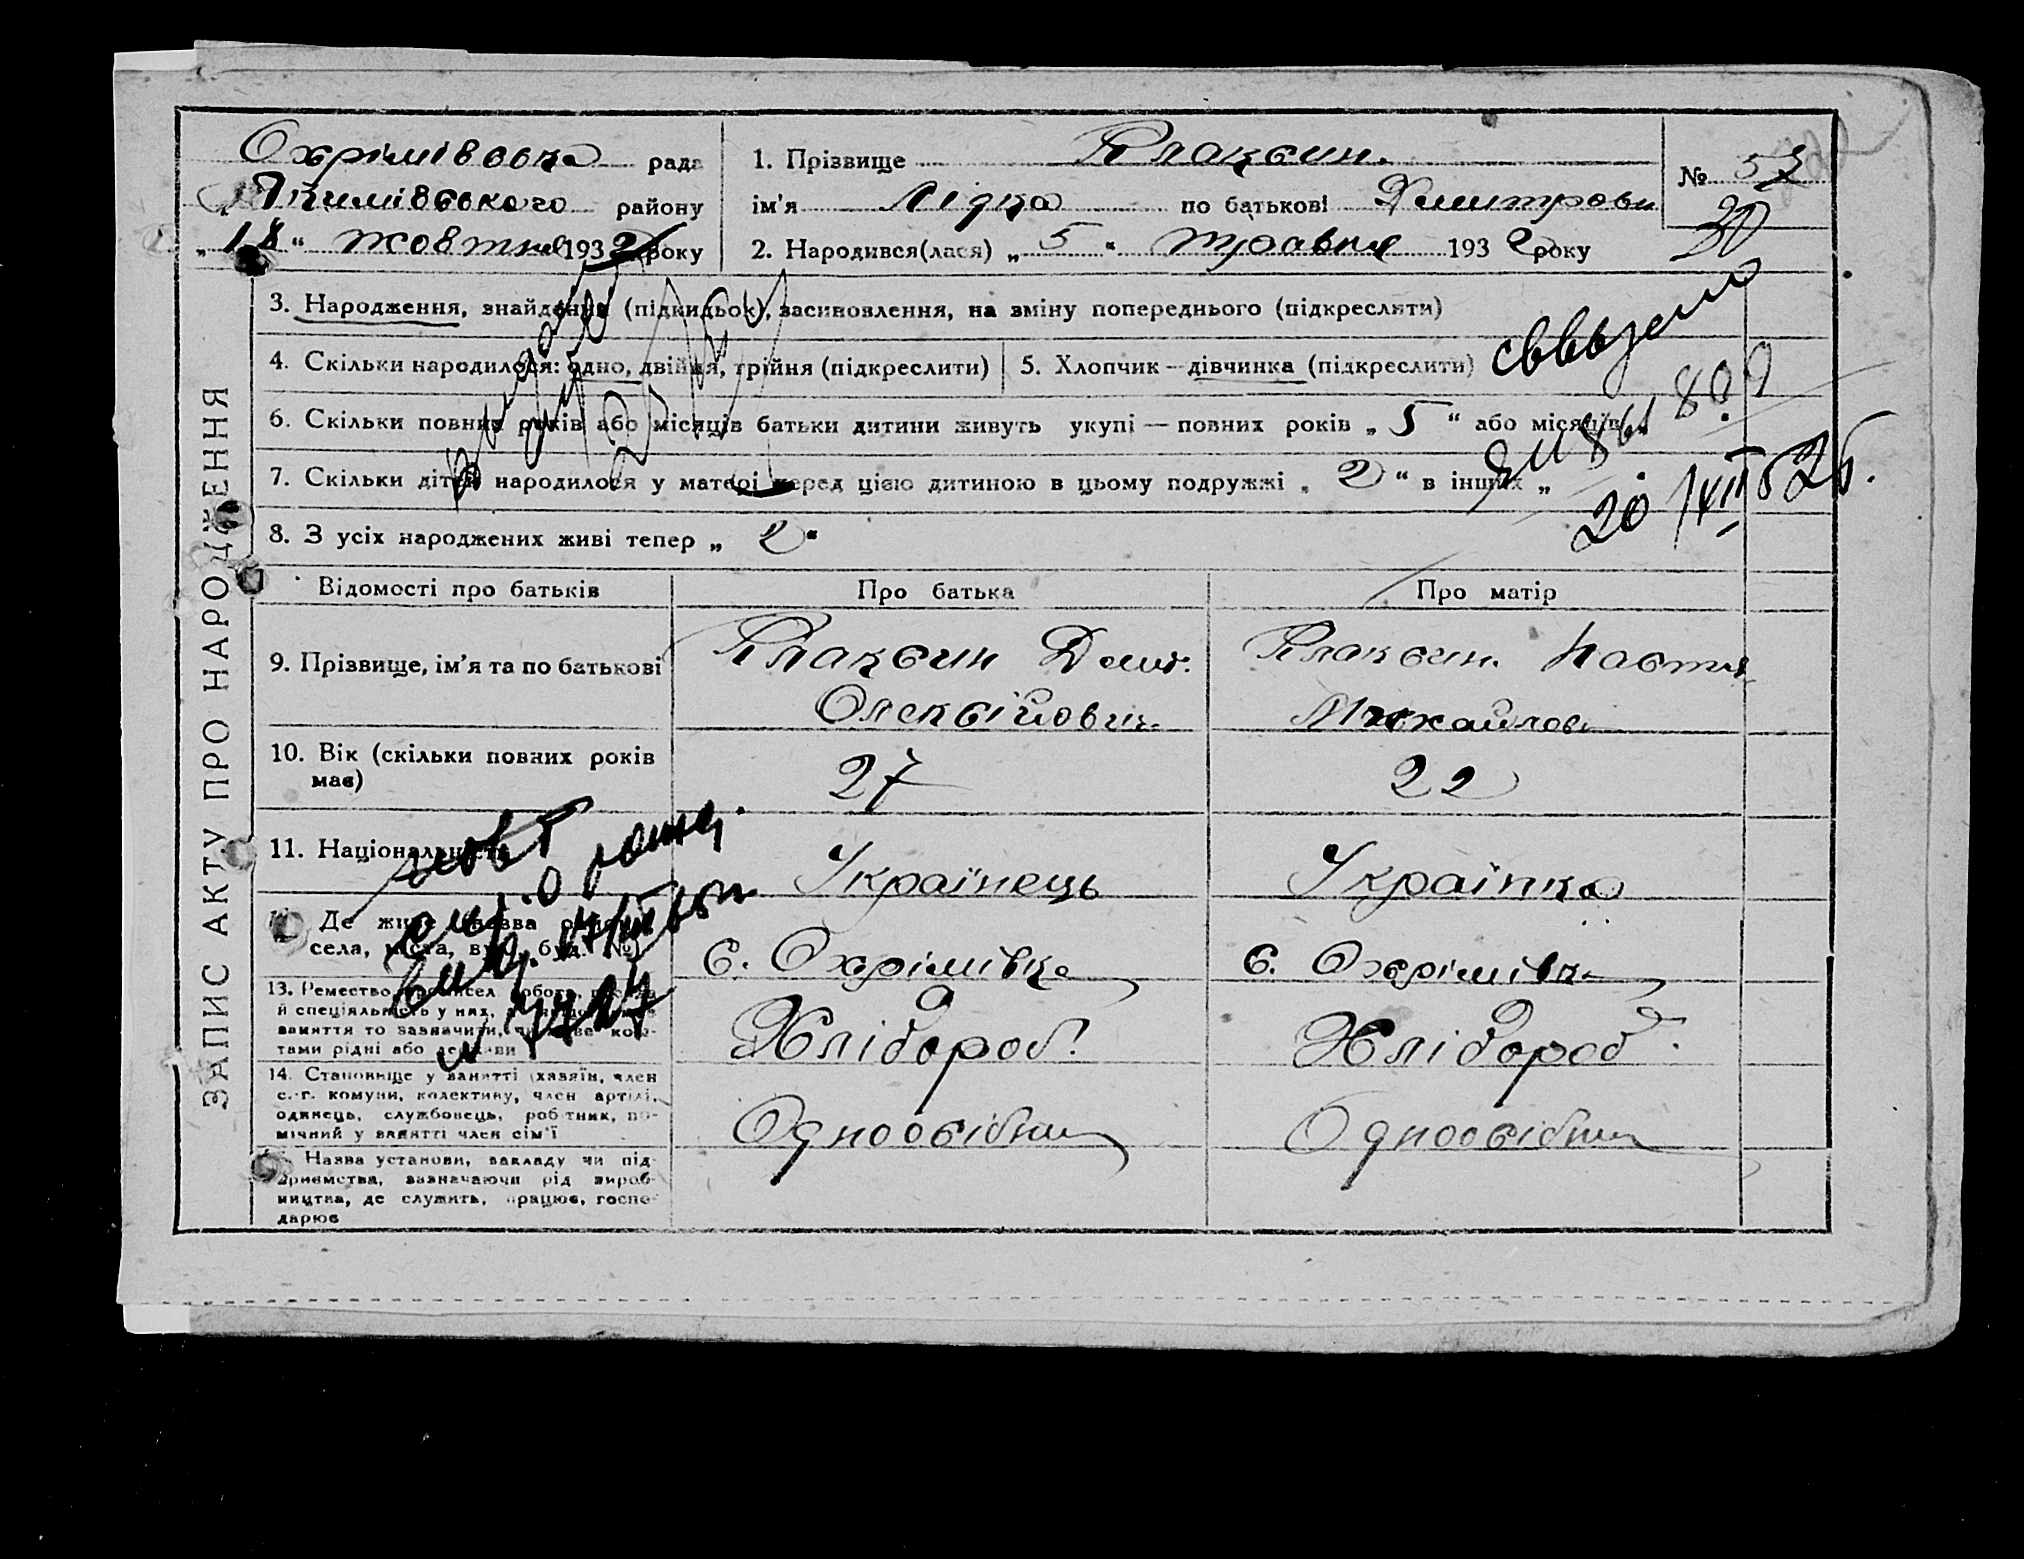 Охрімівська рада
Якимівського району
„18“ жовтня 1932 року
1. Прізвище Плаксин.
№ 57
ім'я Лідка по батькові Дмитровн
30
2. Народився(лася) „5“ травня 1932 року
3. Народження, знайдення (підкидьок), засиновлення, на зміну попереднього (підкреслити)
4. Скільки народилося: одно, двійня, трійня (підкреслити)
5. Хлопчик — дівчинка (підкреслити)
6. Скільки повних років або місяців батьки дитини живуть укупі — повних років „5“ або місяців
7. Скільки дітей народилося у матері перед цією дитиною в цьому подружжі „2“ в інших „
8. З усіх народжених живі тепер „2“
Відомості про батьків Про батька Про матір
9. Прізвище, ім'я та по батькові
Плаксин Дмит.
Олексійович
Плаксин. Настя
Михайлов
10. Вік (скільки повних років має)
27 22
11. Національність
Українець Українка
Де живе (назва округи, села, міста, вул., буд. №)
с. Охрімівка с. Охрімівка
13. Ремество, промисел, робота, посада
й спеціяльність у них,
заняття то зазначити, чи живе кош-
тами рідні або держави
Хлібороб. Хлібороб.
14. Становище у занятті (хазяїн, член
с.-г. комуни, колективу, член артілі,
одинець, службовець, робітник, по-
мічний у занятті член сім'ї
Одноосібник Одноосібник
Назва установи, закладу чи під-
приємства, зазначаючи рід вироб-
ництва, де служить, працює, госпо-
дарює
ЗАПИС АКТУ ПРО НАРОДЖЕННЯ